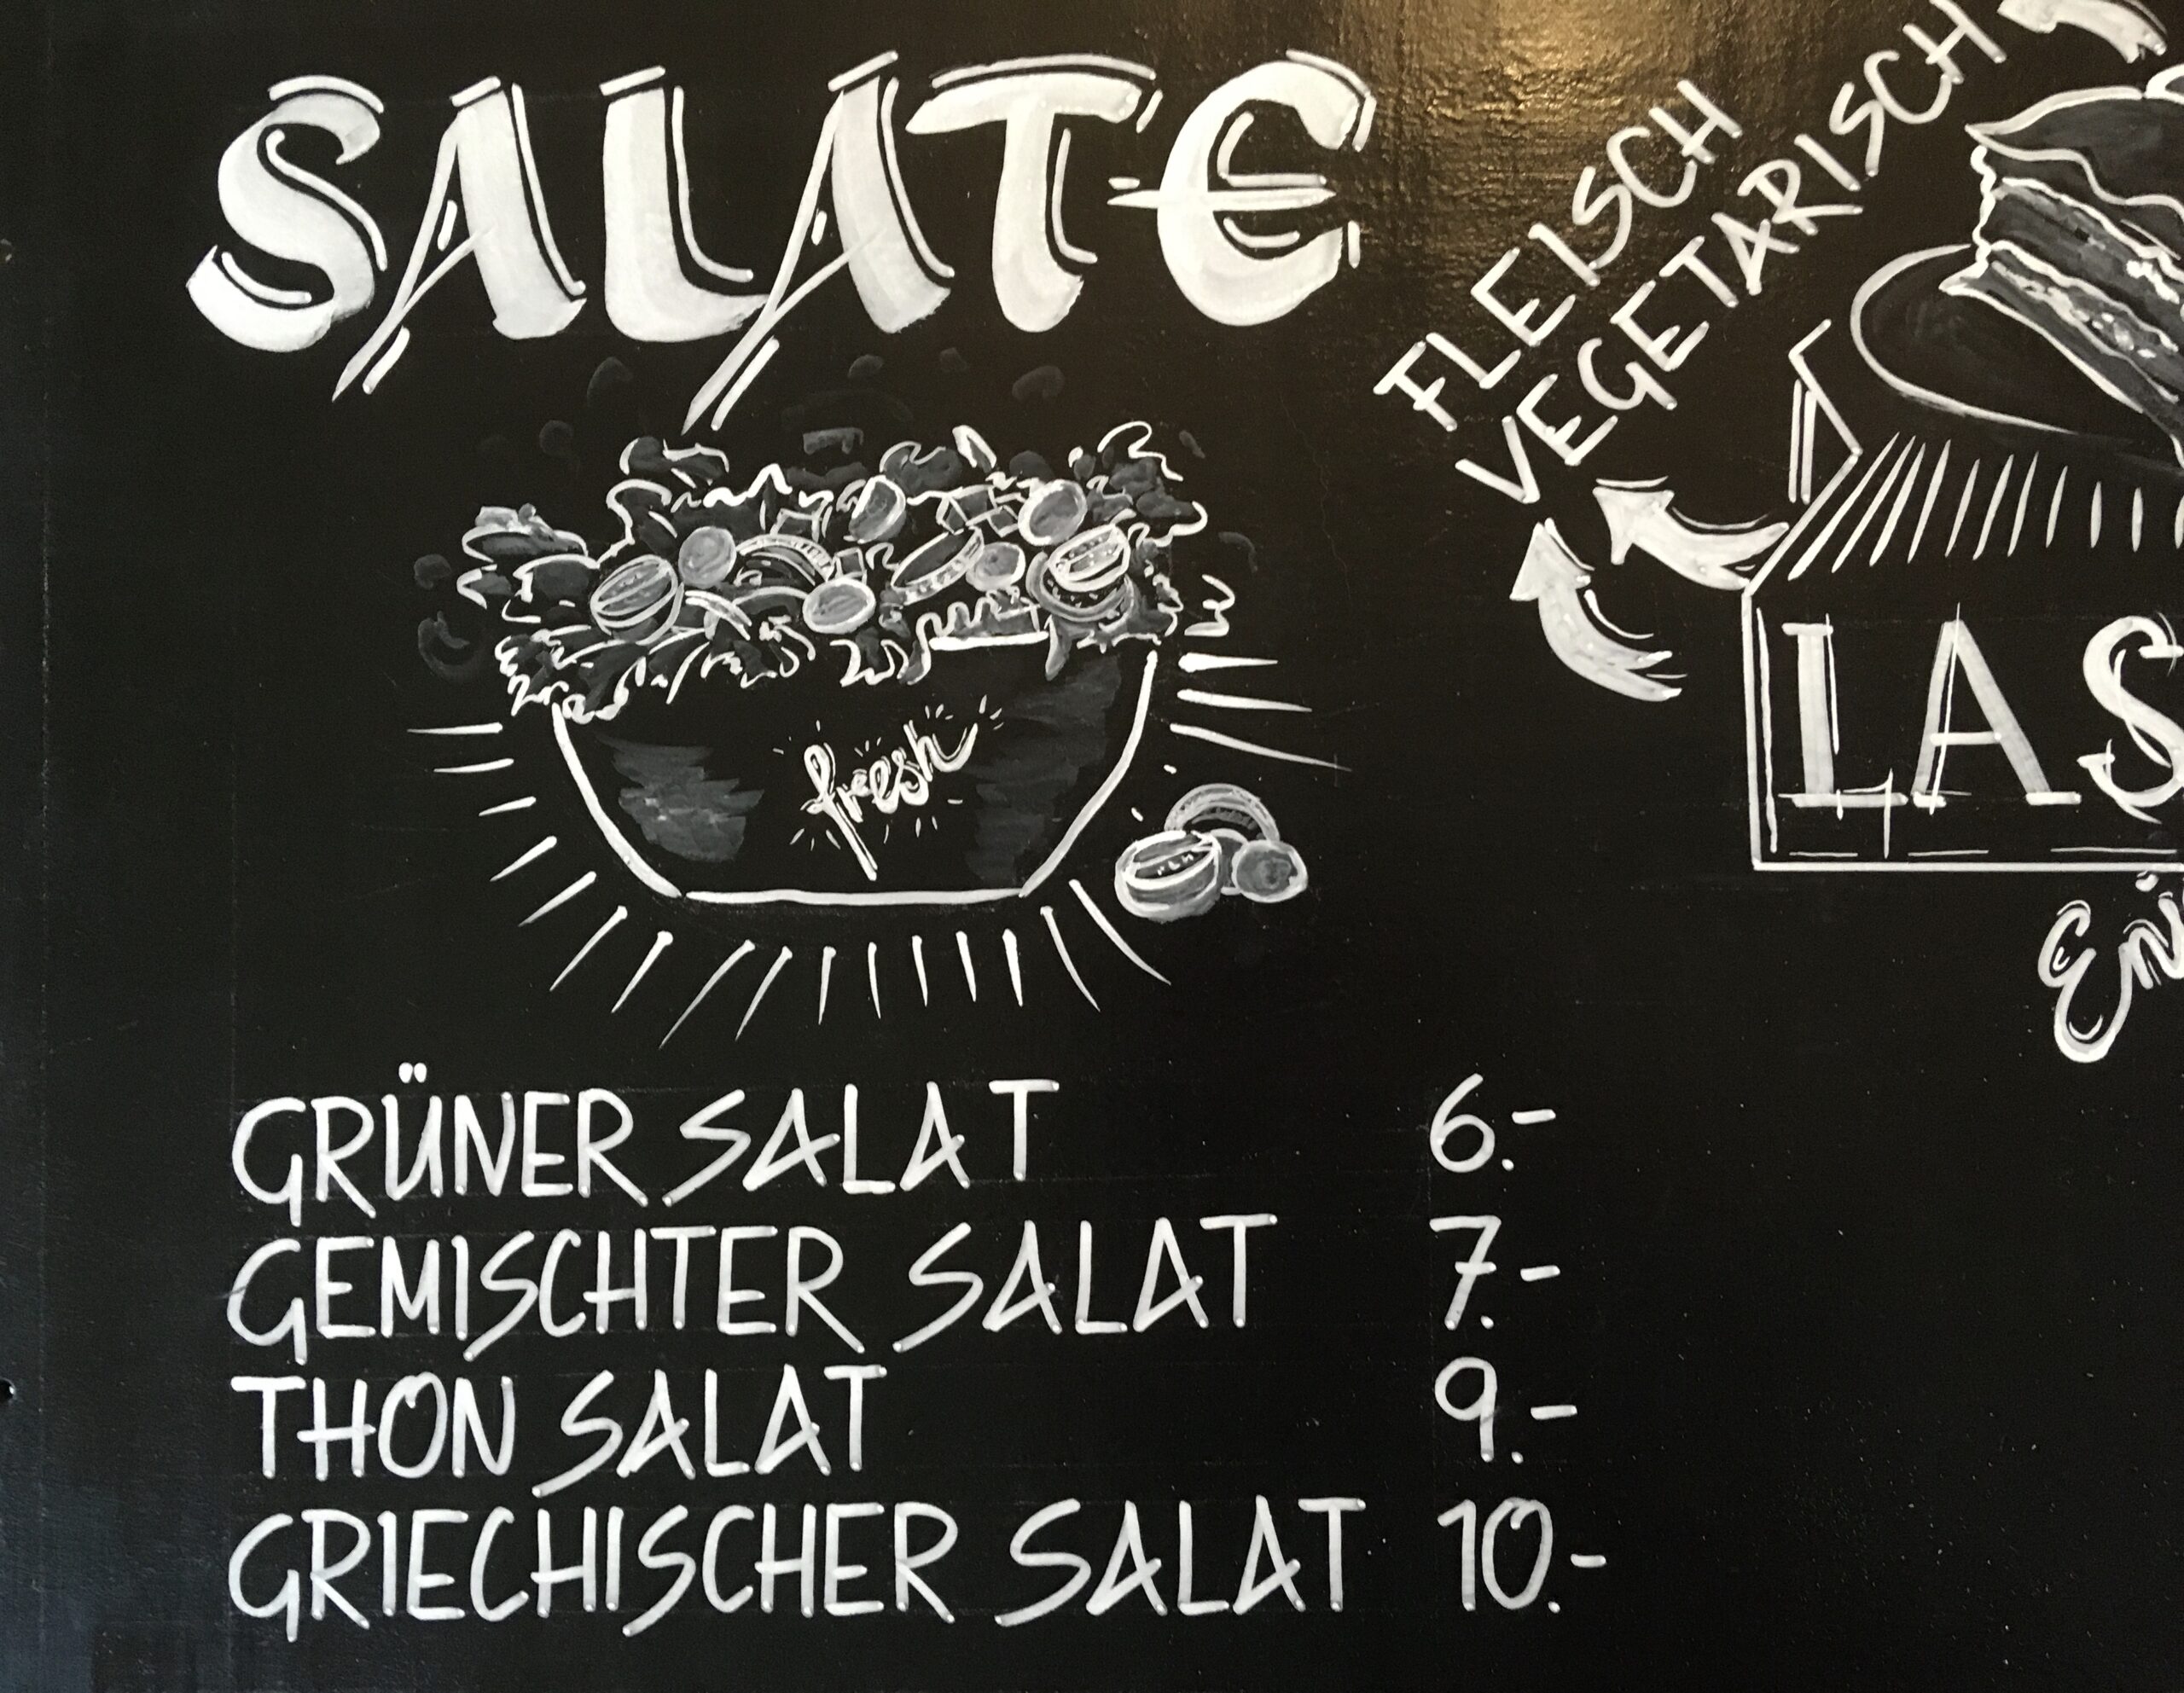 SALATE
FLEISCH
VEGETARISCH
fresh
LAS
GRÜNER SALAT 6.-
GEMISCHTER SALAT 7.-
THON SALAT 9.-
GRIECHISCHER SALAT 10.-